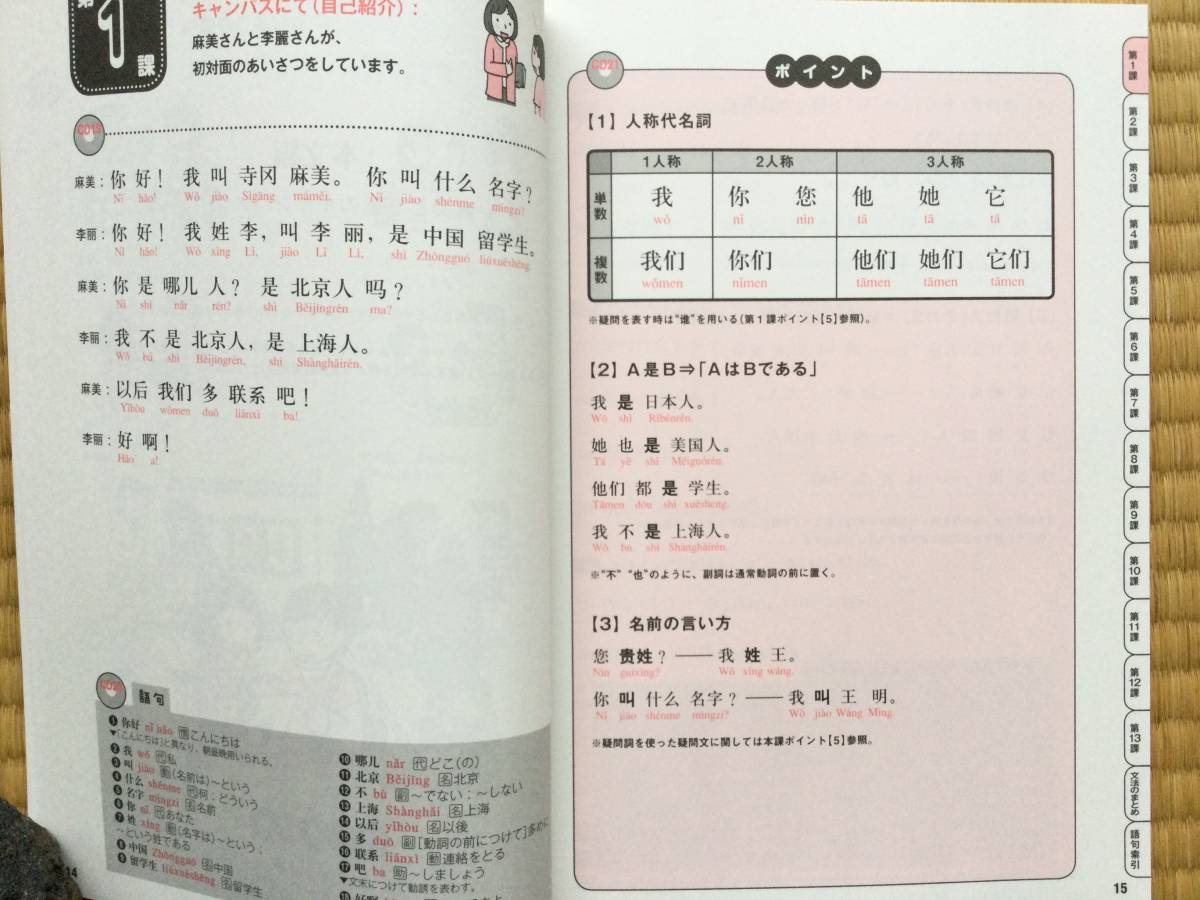 第1課
キャンパスにて(自己紹介):
麻美さんと李麗さんが、
初対面のあいさつをしています。
CD19
麻美: 你 好! 我 叫 寺冈 麻美。 你 叫 什么 名字?
Nǐ hǎo! Wǒ jiào Sìgāng máměi. Nǐ jiào shénme míngzi?
李丽: 你 好! 我 姓 李, 叫 李 丽, 是 中国 留学生。
Nǐ hǎo! Wǒ xìng Lǐ, jiào Lǐ Lì, shì Zhōngguó liúxuéshēng.
麻美: 你 是 哪儿 人? 是 北京人 吗?
Nǐ shì nǎr rén? shì Běijīngrén ma?
李丽: 我 不 是 北京人, 是 上海人。
Wǒ bú shì Běijīngrén, shì Shànghǎirén.
麻美: 以后 我们 多 联系 吧!
Yǐhòu wǒmen duō liánxì ba!
李丽: 好 啊!
Hǎo a!
CD20
語句
❶ 你好 nǐ hǎo 慣こんにちは
▼「こんにちは」と異なり、朝昼晩用いられる。
❷ 我 wǒ 代私
❸ 叫 jiào 動(名前は)〜という
❹ 什么 shénme 代何;どういう
❺ 名字 míngzi 名名前
❻ 你 nǐ 代あなた
❼ 姓 xìng 動(名字は)〜という;
〜という姓である
❽ 中国 Zhōngguó 名中国
❾ 留学生 liúxuéshēng 名留学生
❿ 哪儿 nǎr 代どこ(の)
⓫ 北京 Běijīng 名北京
⓬ 不 bù 副〜でない;〜しない
⓭ 上海 Shànghǎi 名上海
⓮ 以后 yǐhòu 名以後
⓯ 多 duō 副[動詞の前につけて]多めに
⓰ 联系 liánxì 動連絡をとる
⓱ 吧 ba 助〜しましょう
▼文末につけて勧誘を表わす。
⓲ 好啊
14
CD21
ポイント
【1】人称代名詞
1人称 2人称 3人称
単数 我 你 您 他 她 它
wǒ nǐ nín tā tā tā
複数 我们 你们 他们 她们 它们
wǒmen nǐmen tāmen tāmen tāmen
※疑問を表す時は“谁”を用いる(第1課ポイント【5】参照)。
【2】A是B⇒「AはBである」
我 是 日本人。
Wǒ shì Rìběnrén.
她 也 是 美国人。
Tā yě shì Měiguórén.
他们 都 是 学生。
Tāmen dōu shì xuésheng.
我 不 是 上海人。
Wǒ bu shì Shànghǎirén.
※“不”“也”のように、副詞は通常動詞の前に置く。
【3】名前の言い方
您 贵姓? ── 我 姓 王。
Nín guìxìng? Wǒ xìng wáng.
你 叫 什么 名字? ── 我 叫 王 明。
Nǐ jiào shénme míngzi? Wǒ jiào Wáng Míng.
※疑問詞を使った疑問文に関しては本課ポイント【5】参照。
15
第1課
第2課
第3課
第4課
第5課
第6課
第7課
第8課
第9課
第10課
第11課
第12課
第13課
文法のまとめ
語句索引